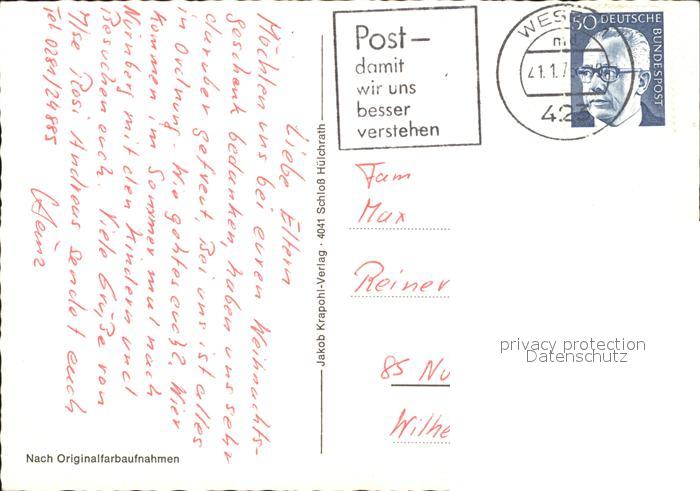 Liebe Eltern
Möchten uns bei euren Weihnachts-
geschenk bedanken, haben uns sehr
darüber gefreut. Bei uns ist alles
in Ordnung. Wie geht es euch? Wir
kommen im Sommer mal nach
Nürnberg mit den Kindern und
Besuchen euch. Viele Grüße von
Ilse Rosi Andreas sendet euch
Tel 0281/24885
Heinz
Nach Originalfarbaufnahmen
Jakob Krapohl-Verlag · 4041 Schloß Hülchrath
Post–
damit
wir uns
besser
verstehen
WES
21.1.7
423
50 DEUTSCHE
BUNDESPOST
Fam
Max
Reiner
85 Nu
Wilhe
privacy protection
Datenschutz